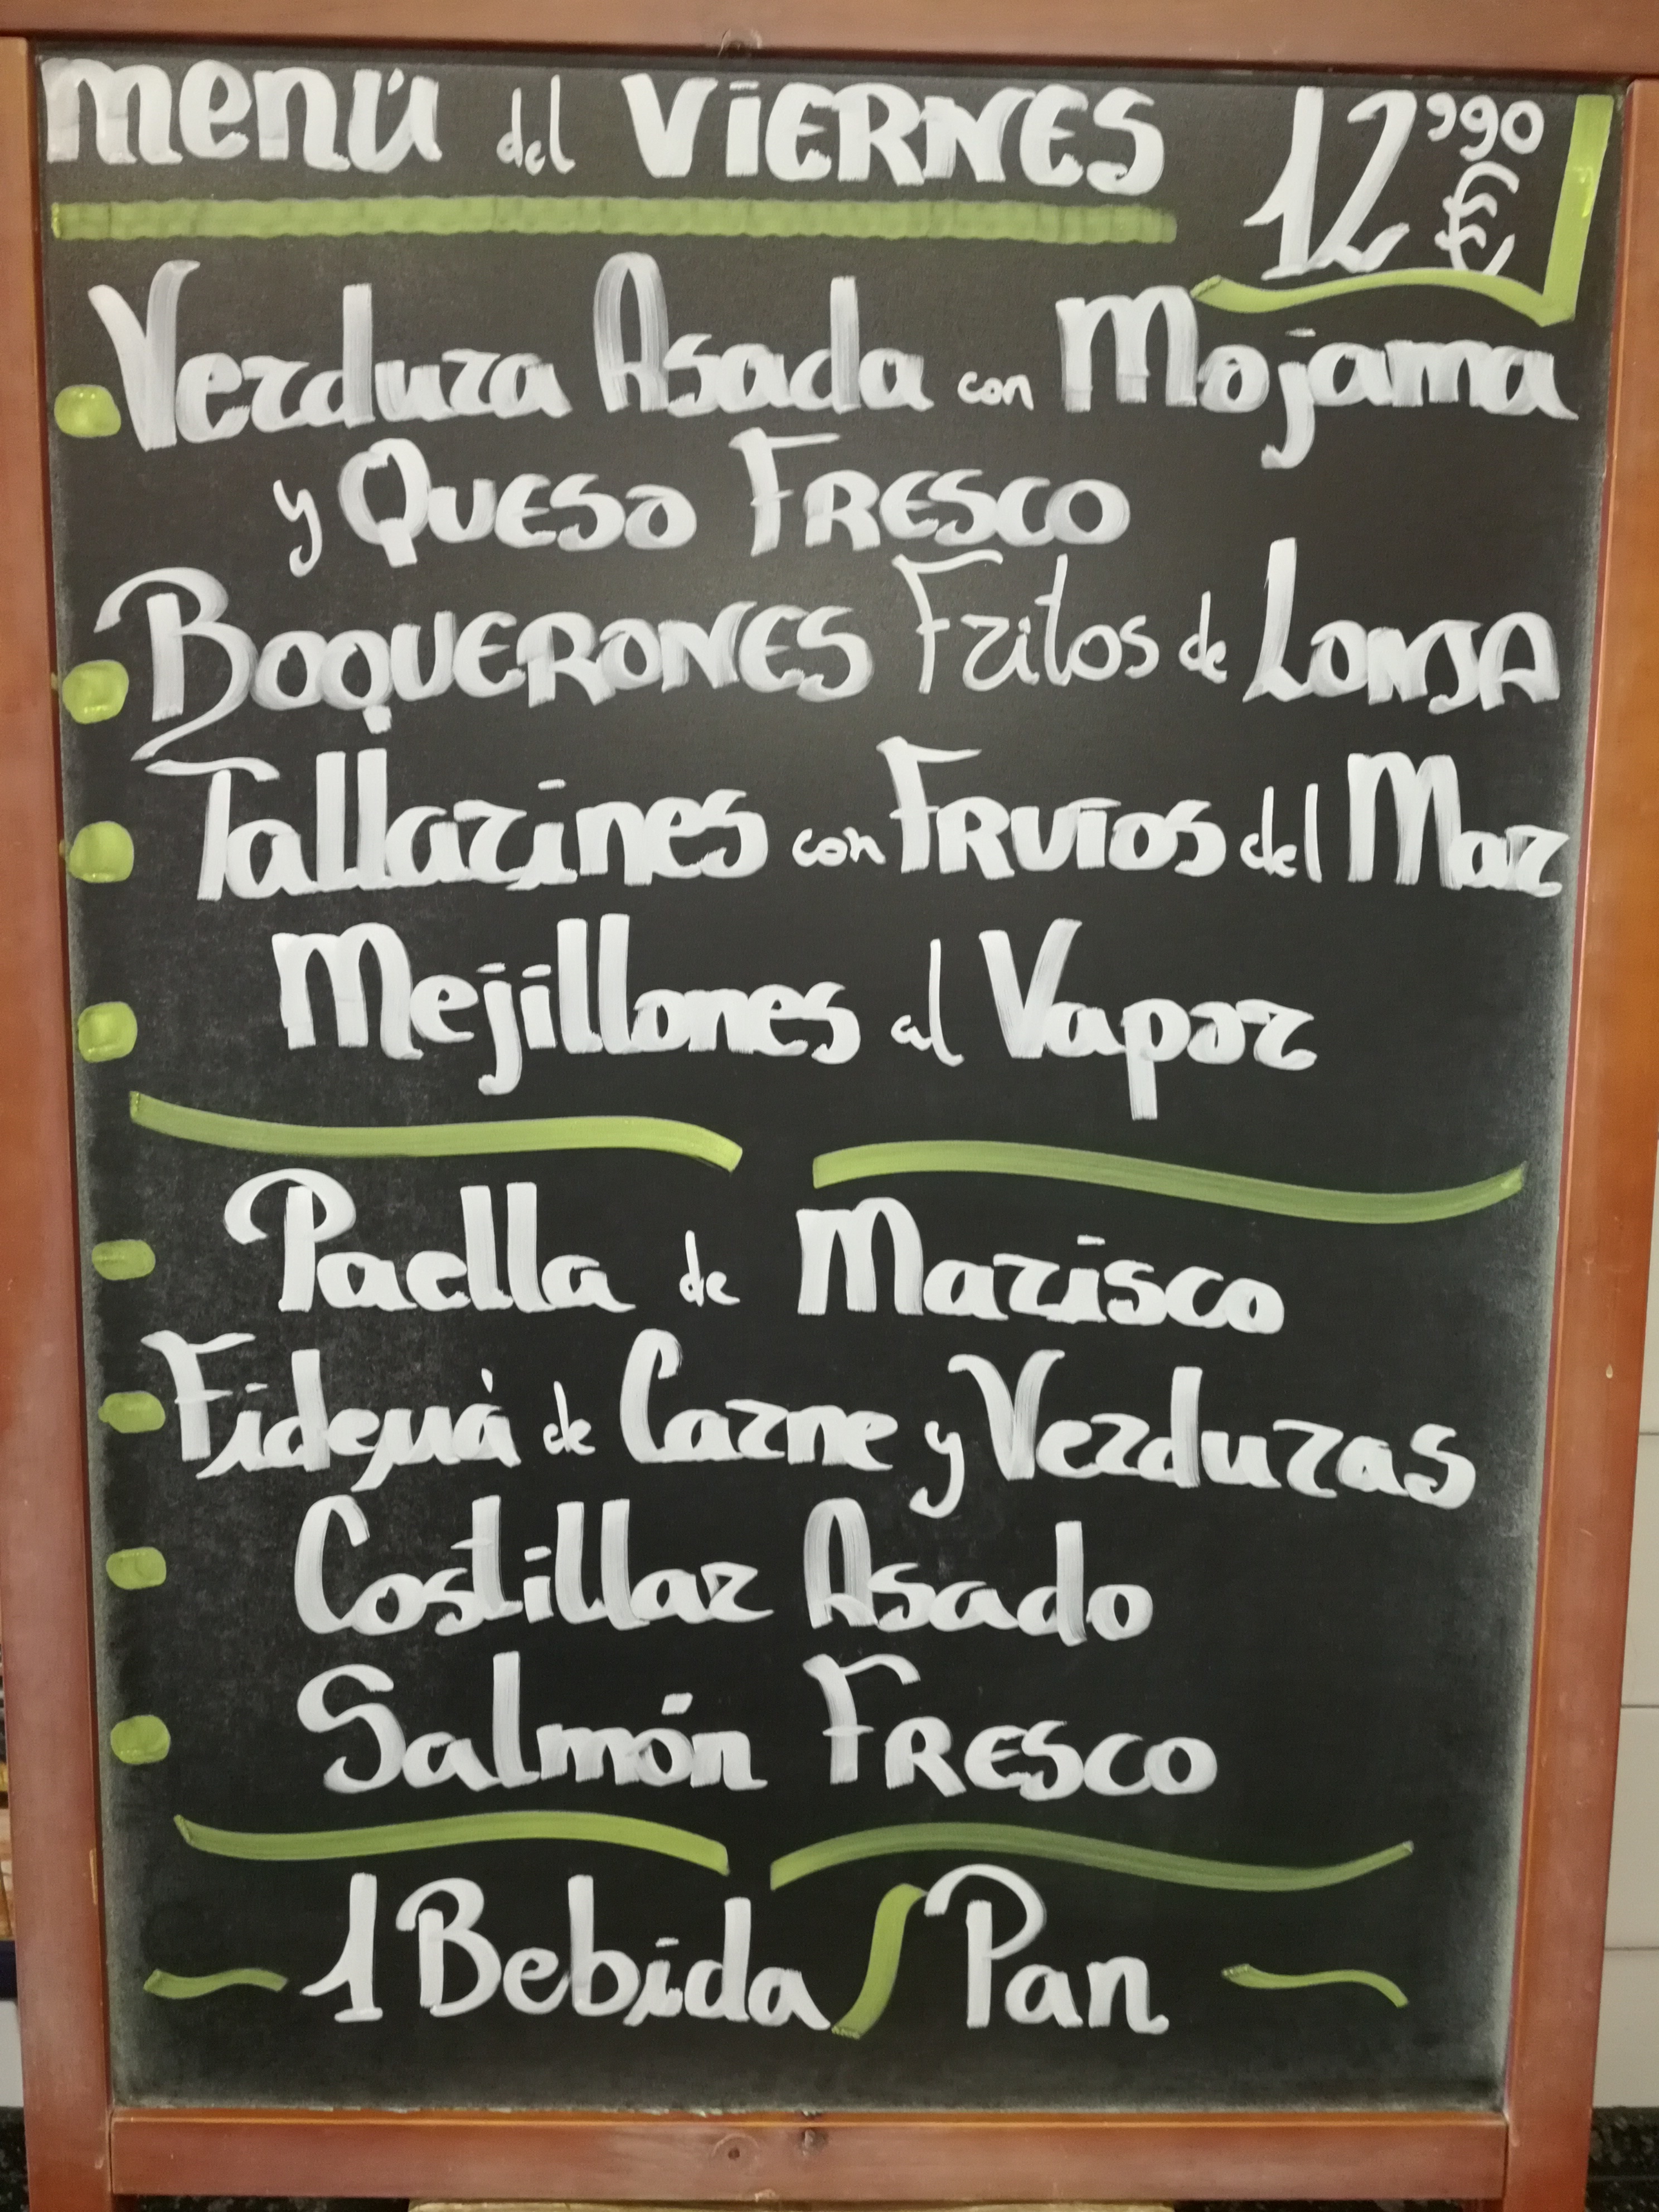 menú del VIERNES 12,90 €
Verdura Asada con Mojama
y Queso Fresco
Boquerones Fritos de Lonja
Tallarines con Frutos del Mar
Mejillones al Vapor
Paella de Marisco
Fideuá de Carne y Verduras
Costillar Asado
Salmón Fresco
1 Bebida / Pan